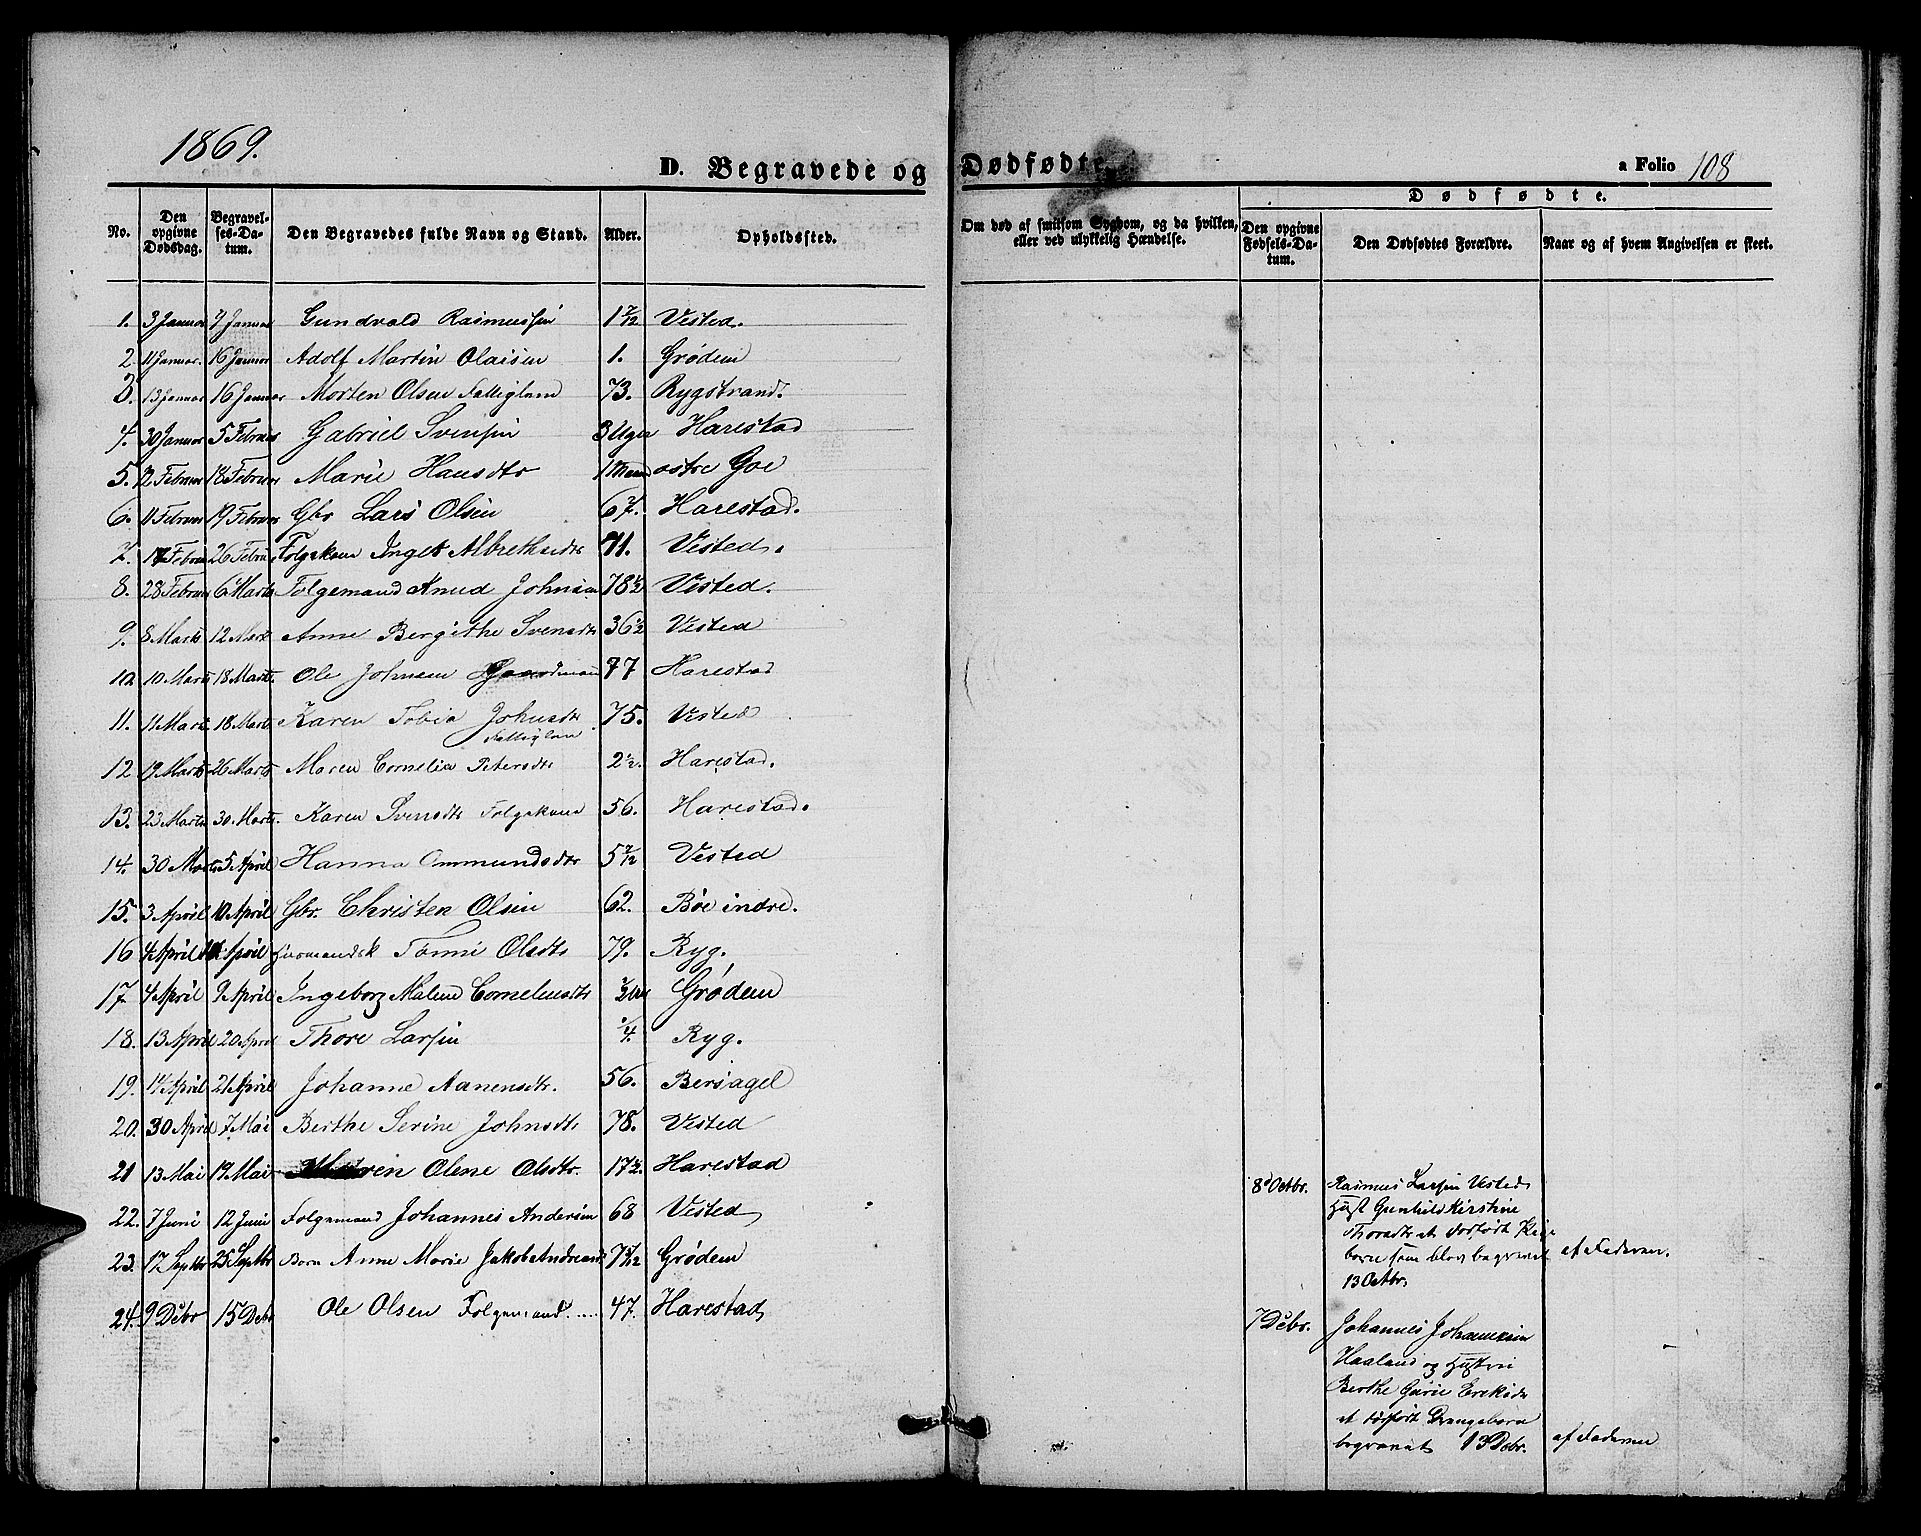 1869.
D. Begravede og Dødfødte.
a Folio 108
Dødfødte.
No. Den opgivne Dødsdag. Begravelses-Datum. Den Begravedes fulde Navn og Stand. Alder. Opholdssted. Om død af smitsom Sygdom, og da hvilken, eller ved ulykkelig Hændelse. Den opgivne Fødsels-Datum. Den Dødfødtes Forældre. Naar og af hvem Angivelsen er skeet.
1. 3 Januar 7 Januar Gundvald Rasmussen 1 7/12 Vested.
2. 11 Januar. 16 Januar Adolf Martin Olaisen 1. Grødem
3. 13 Januar 16 Januar Morten Olsen Fattiglem 73. Rygstrand.
4. 30 Januar 5 Februar Gabriel Svensen 3 Uger Harestad
5. 12 Februar 18 Februar Marie Hansdtr 1 Maaned østre Goe
6. 11 Februar 19 Februar Gbr Lars Olsen 67. Harestad.
7. 17 Februar 26 Februar Folgekone Inget Albrethsdtr 71. Vested.
8. 28 Februar 6 Marts Folgemand Knud Johnsen 78 1/2 Vested.
9. 8 Marts 12 Marts Anne Bergithe Svensdtr 36 1/2 Vested
10 10 Marts 18 Marts. Ole Johnsen Gaardmand 77 Harestad
11. 11 Marts 18 Marts Karen Tobia Johnsdtr 75. Vested
Fattiglem
12 19 Marts 26 Marts Maren Cornelia Petersdtr 2 1/2. Harestad.
13. 23 Marts 30 Marts. Karen Svensdtr Folgekone 56. Harestad.
14. 30 Marts 5 April Hanna Ommundsdtr 5 7/12 Vested
15. 3 April 10 April Gbr. Christen Olsen 62. Bøe indre.
16 4 April April Huusmandsk Tonni Olsdtr 79. Ryg.
17. 4 April 9 April Ingeborg Malene Corneliusdtr 1/2 Aar Grødem
18. 13 April 20 April Thore Larsen 1/4. Ryg.
19. 14 April 21 April Johanne Aanensdtr. 56. Bersagel
20. 30 April 7 Mai Berthe Serine Johnsdtr 78. Vested
21 13 Mai 19 Mai Maren Olene Olsdtr. 17 1/2. Harestad
22. 7 Juni 12 Juni Folgemand Johannes Andersen 68 Vested
23. 17 Septbr 25 Septbr Barn Anne Marie Jakobe Andreasd 7 /12 Grødem
24. 9 Debr 15 Debr Ole Olsen Folgemand..... 47. Harestad
8d Octbr. Rasmus Larsen Vested
Hust Gunhild Kirstine
Thoradtr et dødfødt Pige
barn som blev begravet af Faderen.
13 Octbr.
7 Debr. Johannes Johannesen
Haaland og Hustru
Berthe Gurie Eriksdr
et dødfødt Drengebarn
begravet 13 Debr. af Faderen